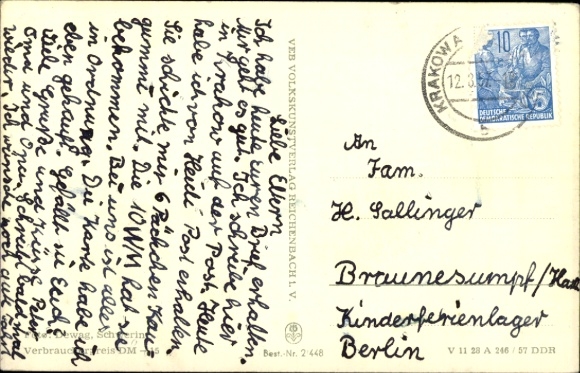 Liebe Eltern
Ich habe heute euren Brief erhalten.
Mir geht es gut. Ich schreibe hier
in Krakow auf der Post. Heute
habe ich von Heidi Post erhalten.
Sie schickte mir 6 Päckchen Kau-
gummi mit. Die 10 WM hat sie
bekommen. Bei uns ist alles
in Ordnung. Die Karte habe ich
eben gekauft. Gefällt sie Euch?
Viele Grüße und Küsse Peter
Oma und Opa. Schreibt bald mal
wieder. Ich wünsche noch gute Fahrt
VEB VOLKSKUNSTVERLAG REICHENBACH I. V.
KRAKOWA
12.3.57
10
5
DEUTSCHE
DEMOKRATISCHE REPUBLIK
An
Fam.
H. Sallinger
Braunesumpf/Harz
Kinderferienlager
Berlin
Foto: Dewag, Schwerin
Verbraucherpreis DM
Best.-Nr. 2 448
V 11 28 A 246 / 57 DDR